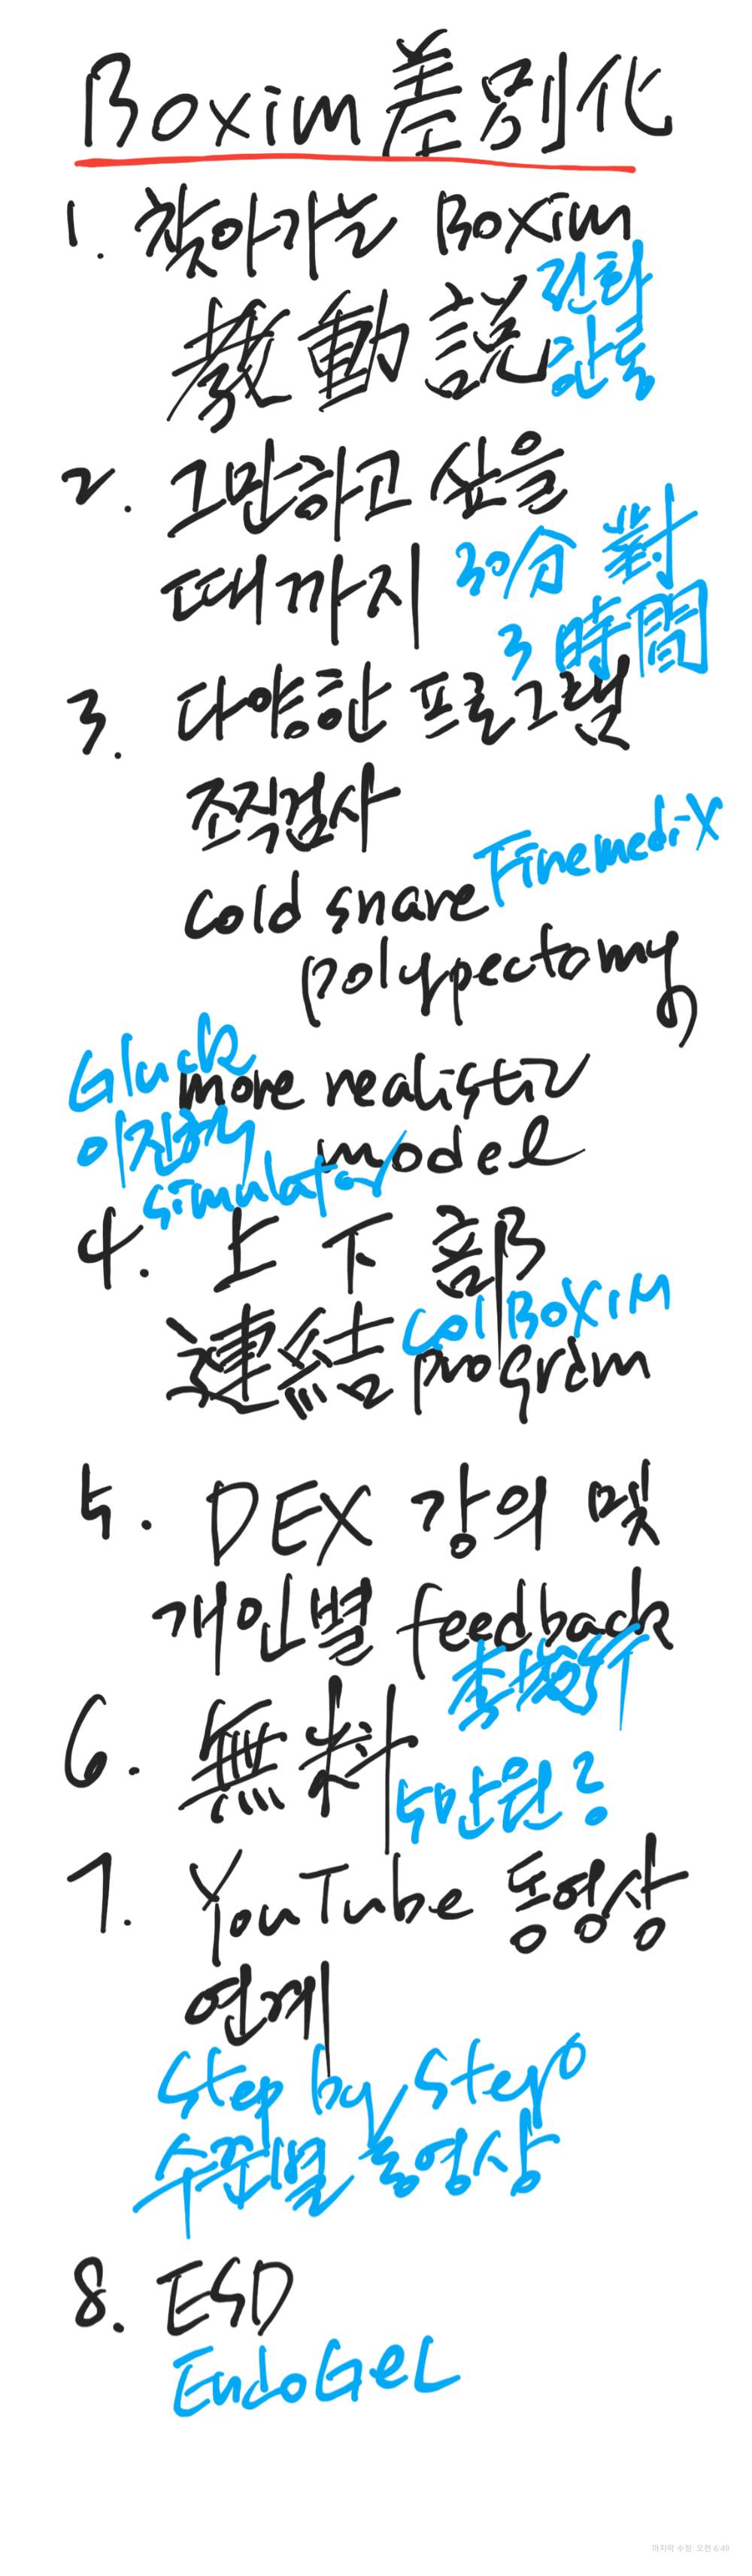 Boxim 差別化
1. 찾아가는 Boxim
敎動說 전화
한통
2. 그만하고 싶을
때까지 30分 對
3時間
3. 다양한 프로그램
조직검사
cold snare Finemedi-X
polypectomy
Gluck more realistic
이진혁 model
simulator
4. 上下部
連結 Col BOXIM
program
5. DEX 강의 및
개인별 feedback
李
6. 無料
5만원?
7. YouTube 동영상
연계
Step by Step
수준별 동영상
8. ESD
EndoGeL
마지막 수정: 오전 6:49